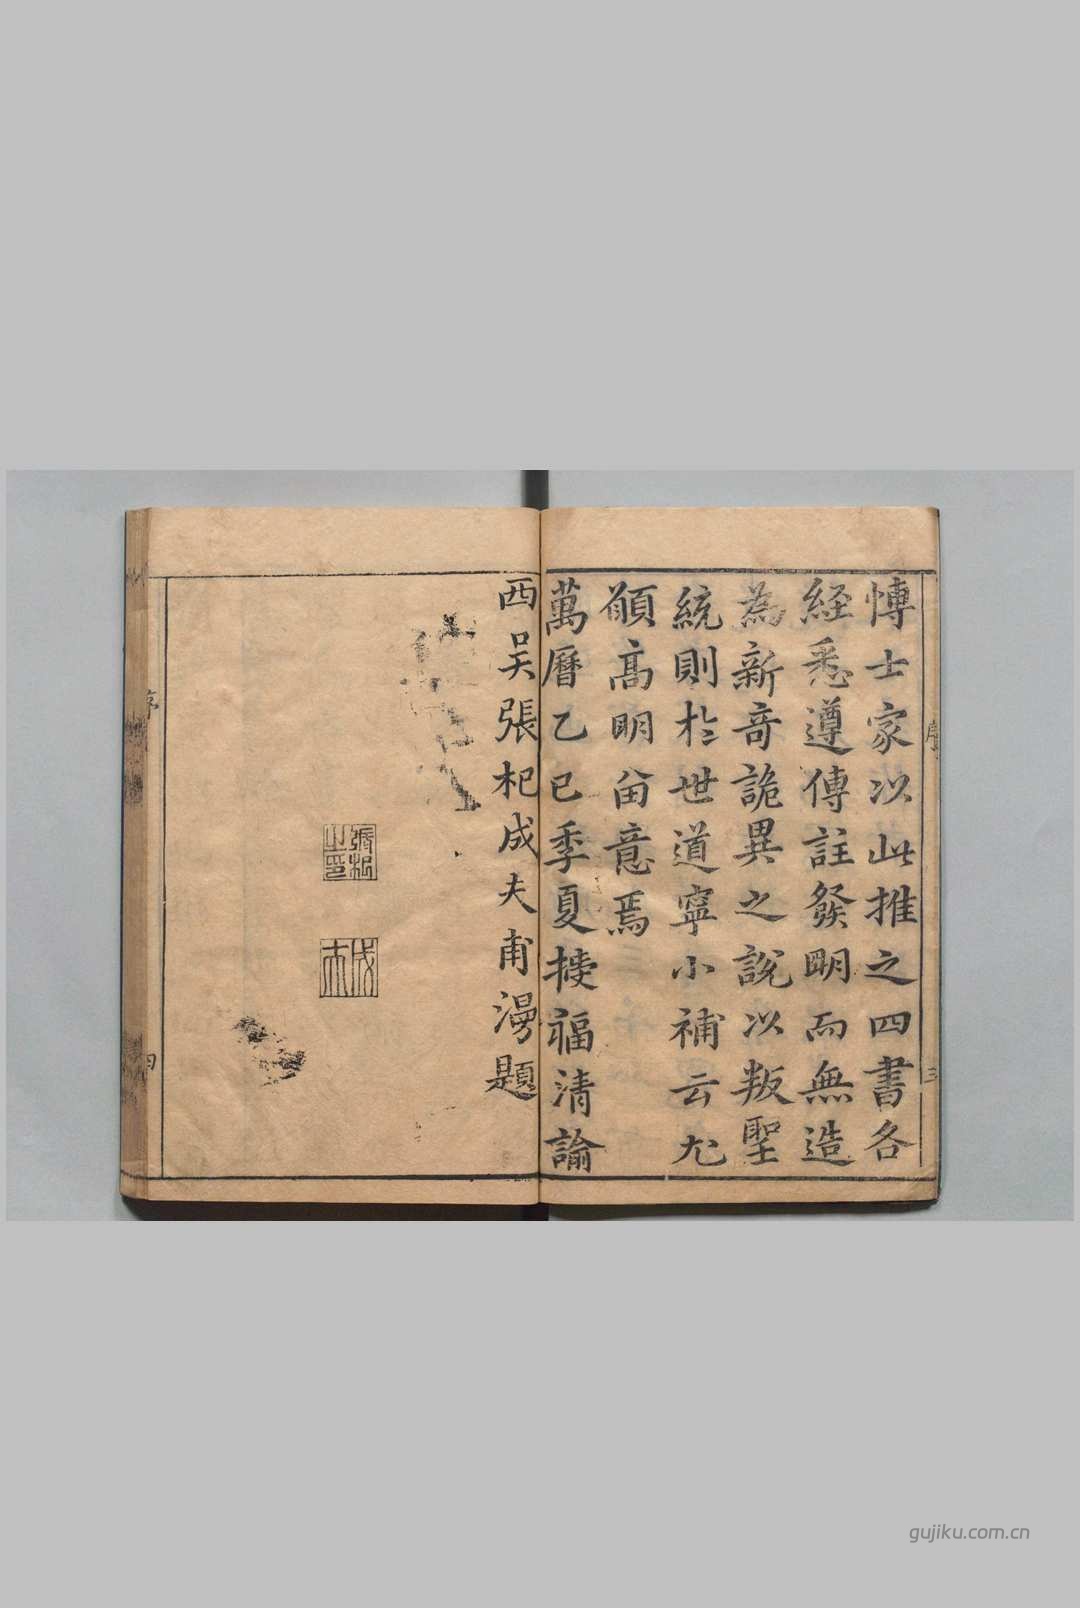 慱士家以此推之四書各
経悉遵傳註發明而無造
為新竒詭異之說以叛聖
統則於世道寧小補云尤
願髙明留意焉
萬曆乙巳季夏㨗福清諭
西吴張杞成夫甫漫題
張杞之印
成夫
序
三
序
四
gujiku.com.cn